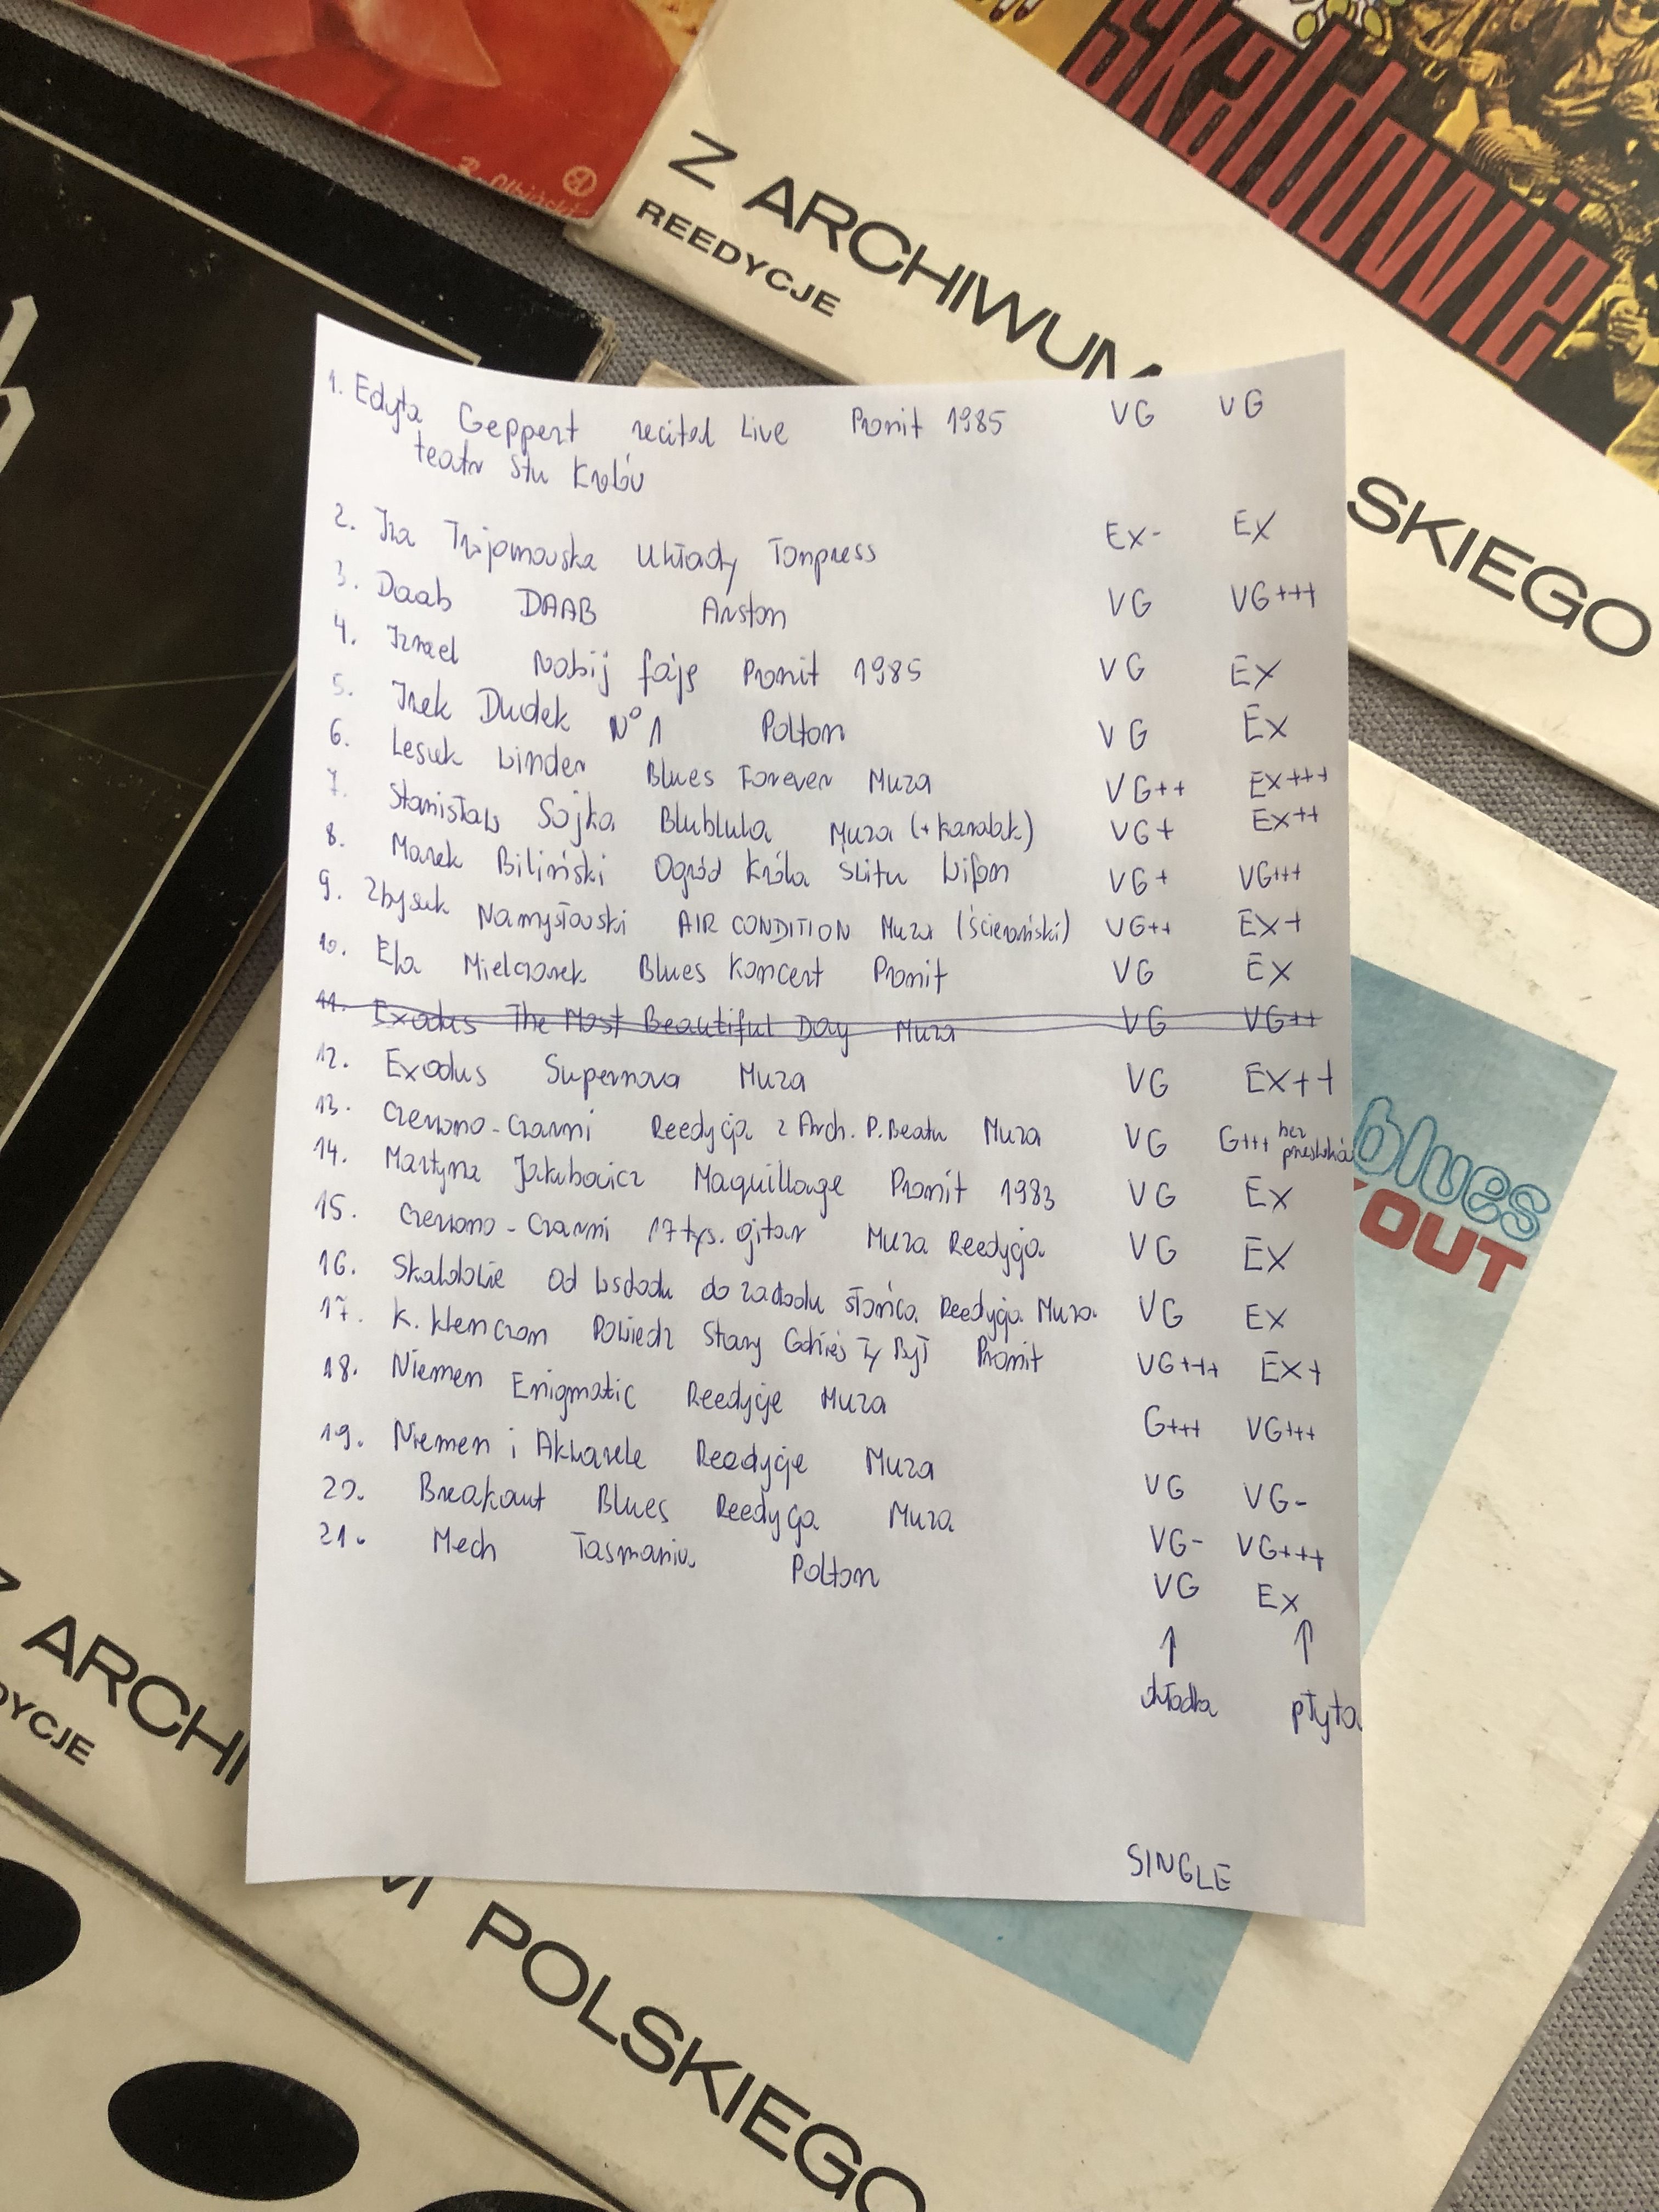 skaldowie
Z ARCHIWUM
REEDYCJE
SKIEGO
1. Edyta Geppert recital Live Pronit 1985 VG VG
teatr Stu Kraków
2. Iza Trojanowska Układy Tonpress EX- EX
3. Daab DAAB Arston VG VG+++
4. Izrael Nabij faję Pronit 1985 VG EX
5. Irek Dudek No 1 Polton VG EX
6. Leszek Winder Blues Forever Muza VG++ EX+++
7. Stanisław Sojka Blublula Muza (+ Karolak) VG+ EX++
8. Marek Biliński Ogród Króla Świtu Wifon VG+ VG+++
9. Zbyszek Namysłowski AIR CONDITION Muza (Ścierański) VG++ EX+
10. Ela Mielczarek Blues Koncert Pronit VG EX
11. Exodus The Most Beautiful Day Muza VG VG++
12. Exodus Supernova Muza VG EX++
13. Czerwono-Czarni Reedycja z Arch. P. Beatu Muza VG G+++ bez
14. Martyna Jakubowicz Maquillage Pronit 1983 VG EX
15. Czerwono-Czarni 17 tys. gitar Muza Reedycja VG EX
16. Skaldowie Od wschodu do zachodu słońca Reedycja Muza VG EX
17. K. Klenczon Powiedz Stary Gdzieś Ty Był Pronit VG+++ EX+
18. Niemen Enigmatic Reedycje Muza G+++ VG+++
19. Niemen i Akwarele Reedycje Muza VG VG-
20. Breakout Blues Reedycja Muza VG- VG+++
21. Mech Tasmania Polton VG EX
↑ ↑
okładka płyta
SINGLE
blues
OUT
Z ARCHI
DYCJE
M POLSKIEGO